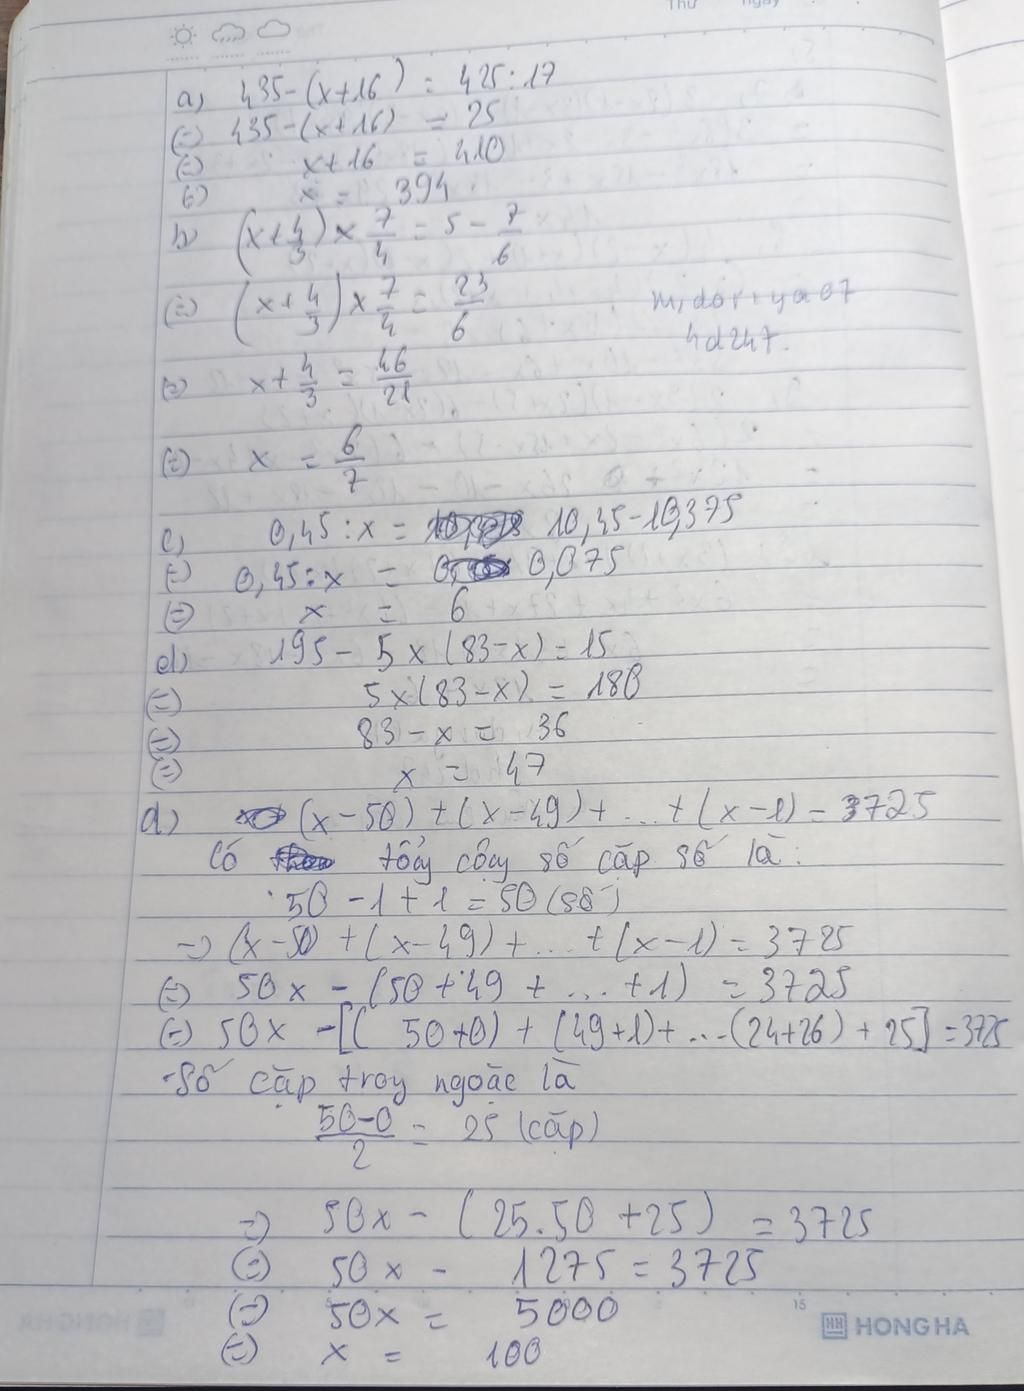 Thứ ngày
a) 435-(x+16) = 425:17
(=) 435-(x+16) = 25
(=) x+16 = 410
(=) x = 394
b) (x+4/3) x 7/4 = 5 - 7/6
(=) (x+4/3) x 7/4 = 23/6
4d247.
(=) x+4/3 = 46/21
(=) x = 6/7
c) 0,45:x = 10,45-10,375
(=) 0,45:x = 0,075
(=) x = 6
d) 195- 5x(83-x)=15
(=) 5x(83-x) = 180
(=) 83-x = 36
(=) x = 47
d) (x-50)+(x-49)+...+(x-1)=3725
Có tổng cộng số cặp số là:
50-1+1=50(số)
=) (x-50)+(x-49)+...+(x-1)=3725
(=) 50x-(50+49+...+1)=3725
(=) 50x-[(50+0)+(49+1)+...(24+26)+25]=3725
-Số cặp trog ngoặc là
50-0/2 = 25 (cặp)
=) 50x-(25.50+25) = 3725
(=) 50x - 1275=3725
(=) 50x = 5000
15
HONG HA
(=) x = 100